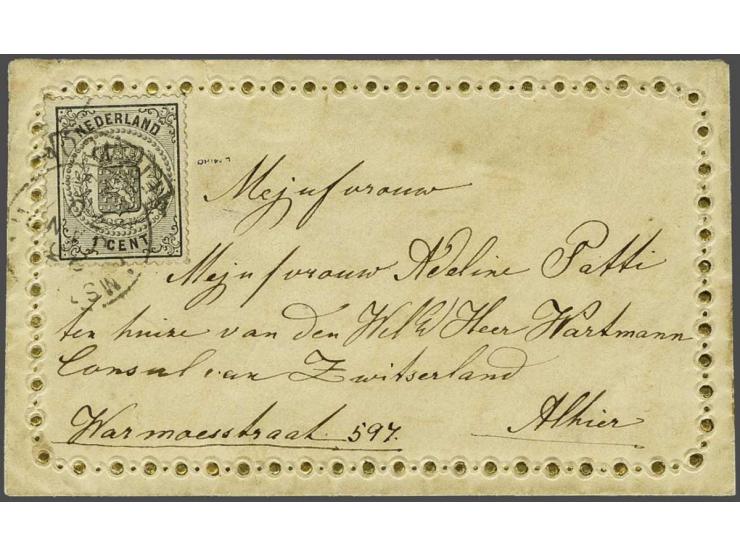 NEDERLAND
1 CENT
Mejufvrouw
Mejufvrouw Adeline Patti
ten huize van den WelEd Heer Wartmann
Consul van Zwitserland
Warmoesstraat 597. Alhier